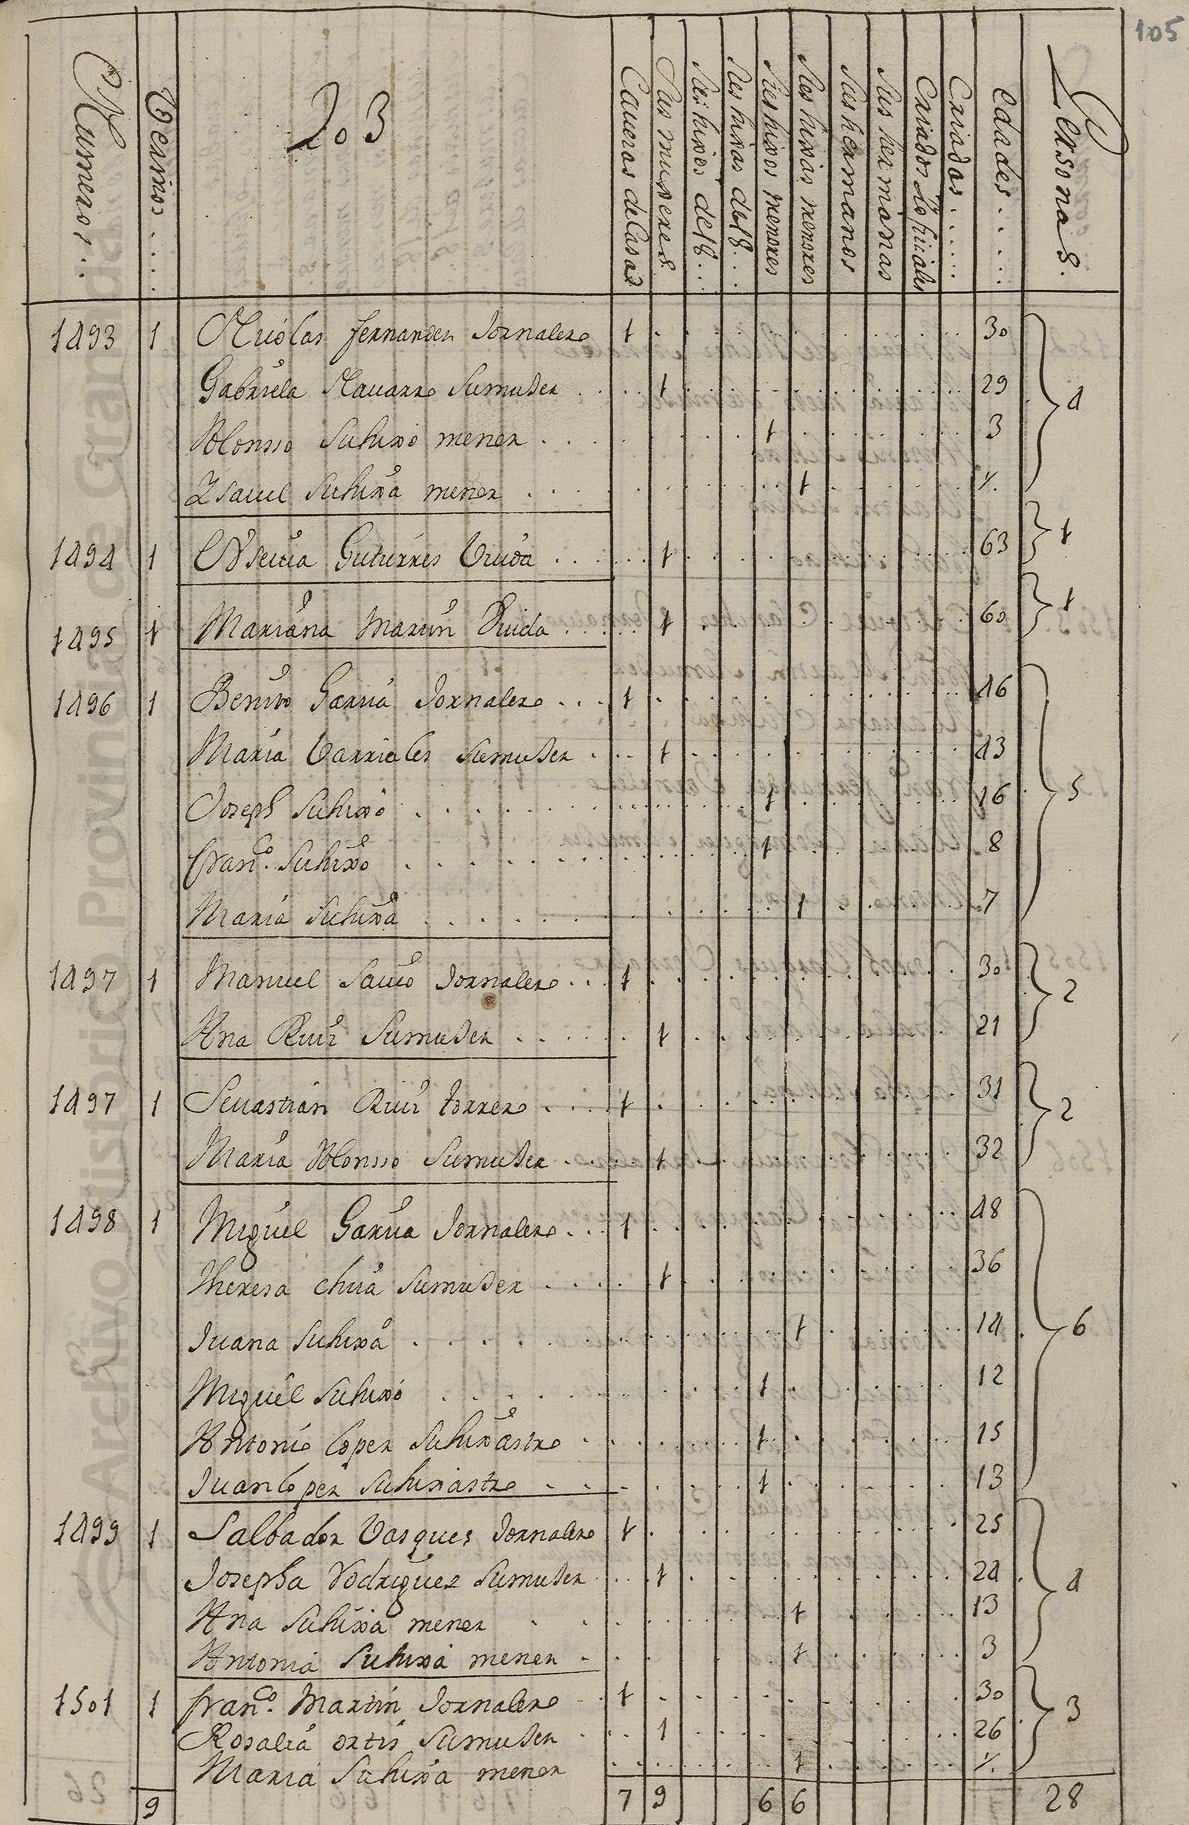 105
Numeros...
Vecinos.....
203
Caveras de Casas
Sus muxeres
Sus hixos de 18...
Sus hixas de 18...
Sus hixos menores
Sus hixas menores
Sus hermanos
Sus hermanas
Criados
Criados.....
edades.....
Personas.
1493 1 Nicolas fernandez Jornalero 1 30
Gabriela Navarro Sumuxer 1 29 4
Alonsso Suhixo menor 1 3
Ysavel Suhixa menor 1 ½
1494 1 Gutierres Viuda 1 63 1
1495 1 Mariana Martin Viuda 1 60 1
1496 1 Benito Garcia Jornalero 1 46
Maria Varriales Sumuxer 1 43
Joseph Suhixo 1 16 5
Franco. Suhixo 1 8
Maria Suhixa 1 7
1497 1 Manuel Jornalero 1 30 2
Ana Ruiz Sumuxer 1 21
1497 1 Sevastian Ruiz torrero 1 31 2
Maria Alonsso Sumuxer 1 32
1498 1 Miguel Garcia Jornalero 1 48
Theresa chica Sumuxer 1 36
Juana Suhixa 1 14 6
Miguel Suhixo 1 12
Antonio lopez Suhixastro 1 15
Juan lopez Suhixastro 1 13
1499 1 Salbador Vasques Jornalero 1 25
Josepha Rodriguez Sumuxer 1 24 4
Ana Suhixa menor 1 13
Antonia Suhixa menor 1 3
1501 1 Franco. Martin Jornalero 1 30
Rosalia ortis Sumuxer 1 26 3
Maria Suhixa menor 1 ½
9 7 9 6 6 28
© Archivo Histórico Provincial de Granada